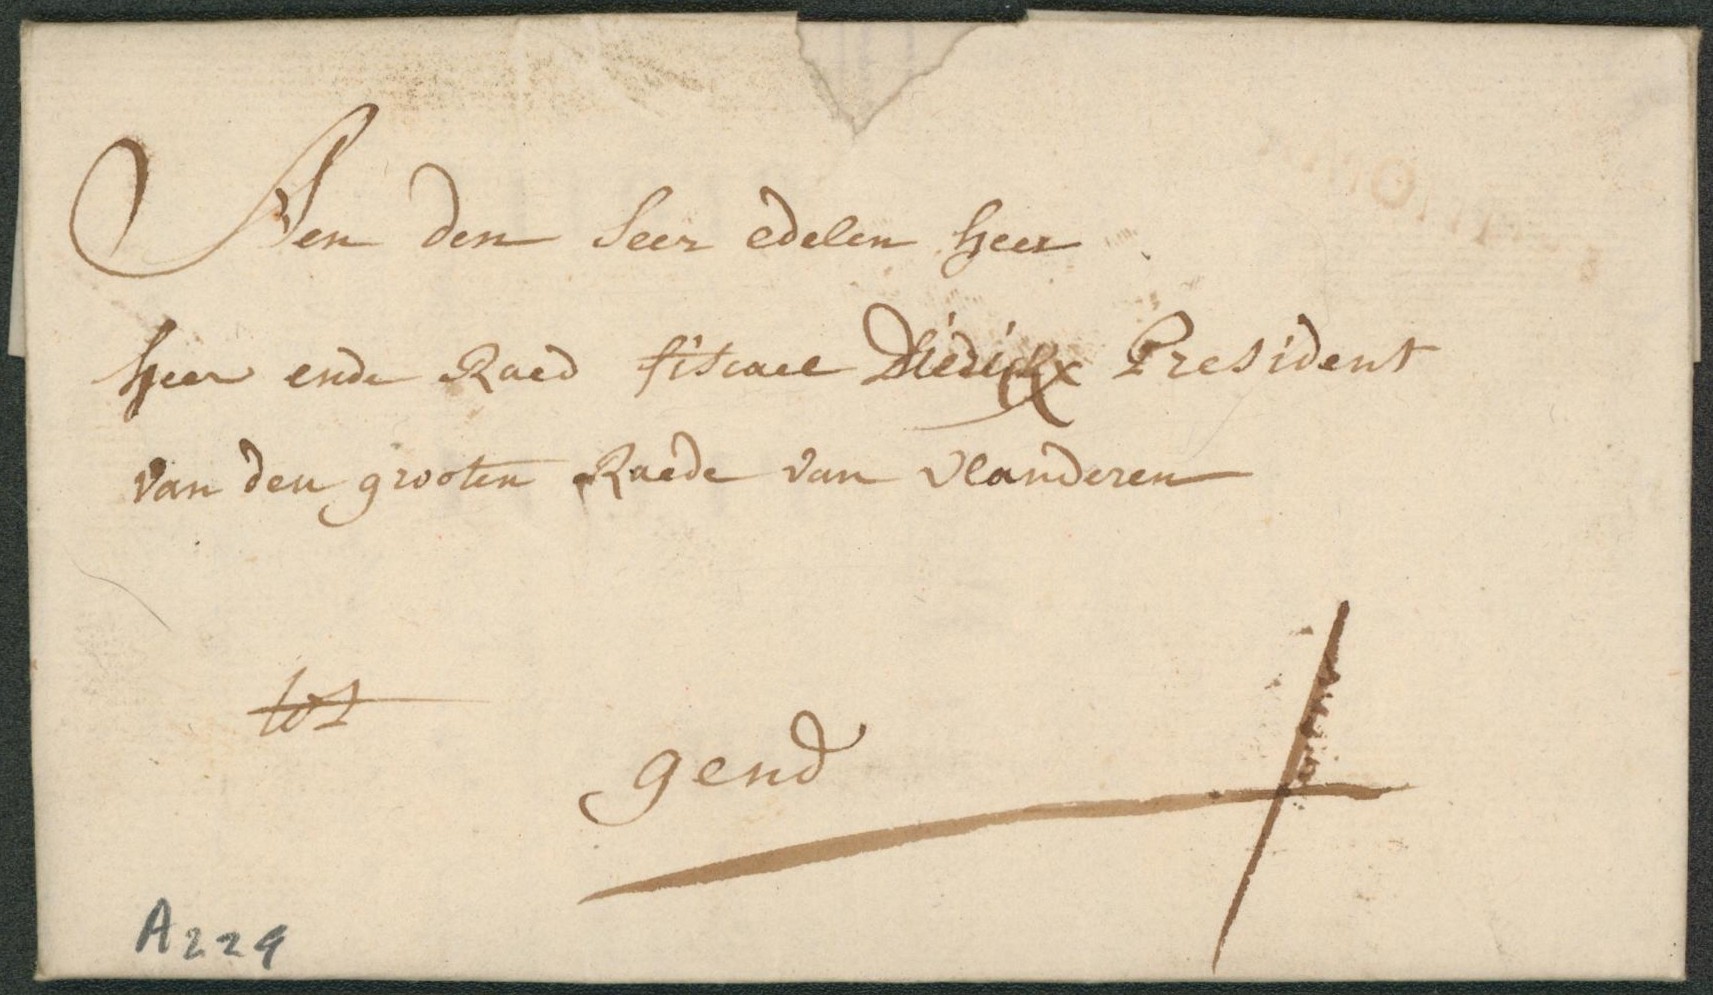 Aen den seer edelen heer
heer ende Raed fiscael Diedickx President
van den grooten Raede van vlanderen
tot
gend
A229